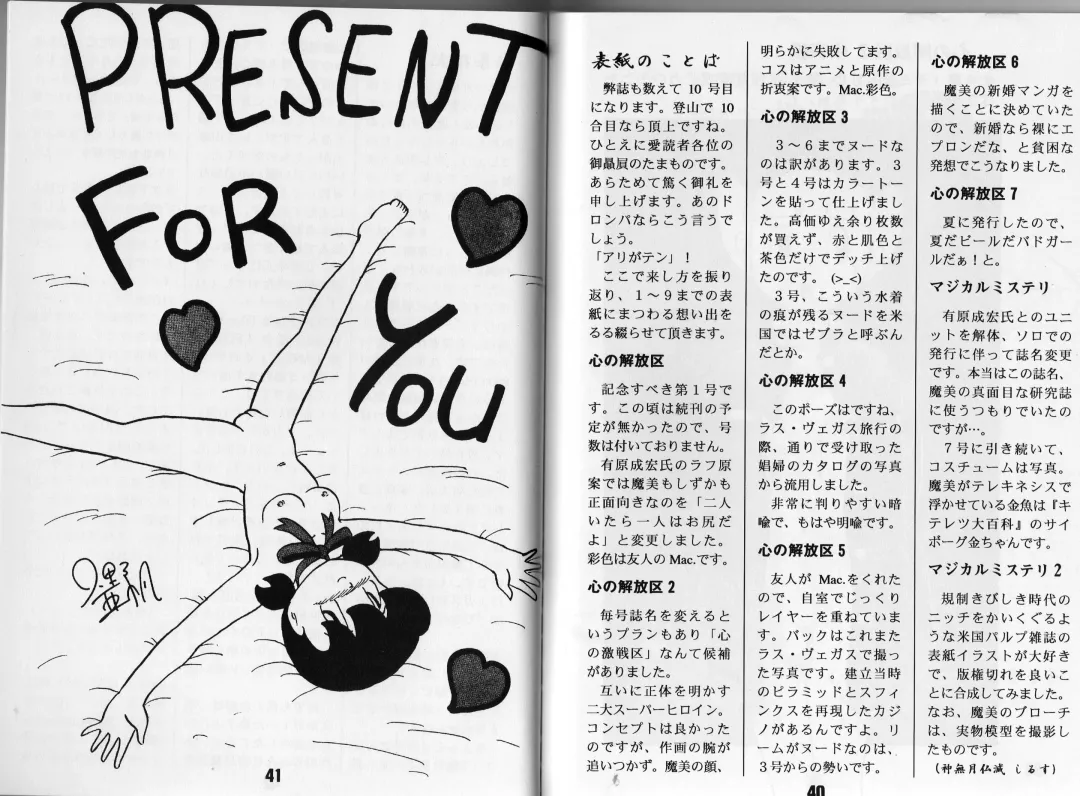 PRESENT
FOR
YOU
41
表紙のことば
弊誌も数えて 10 号目
になります。登山で 10
合目なら頂上ですね。
ひとえに愛読者各位の
御贔屓のたまものです。
あらためて篤く御礼を
申し上げます。あのド
ロンパならこう言うで
しょう。
「アリがテン」!
ここで来し方を振り
返り、1～9までの表
紙にまつわる想い出を
るる綴らせて頂きます。
心の解放区
記念すべき第1号で
す。この頃は続刊の予
定が無かったので、号
数は付いておりません。
有原成宏氏のラフ原
案では魔美もしずかも
正面向きなのを「二人
いたら一人はお尻だ
よ」と変更しました。
彩色は友人の Mac.です。
心の解放区 2
毎号誌名を変えると
いうプランもあり「心
の激戦区」なんて候補
がありました。
互いに正体を明かす
二大スーパーヒロイン。
コンセプトは良かった
のですが、作画の腕が
追いつかず。魔美の顔、
明らかに失敗してます。
コスはアニメと原作の
折衷案です。Mac.彩色。
心の解放区 3
3～6までヌードな
のは訳があります。3
号と4号はカラートー
ンを貼って仕上げまし
た。高価ゆえ余り枚数
が買えず、赤と肌色と
茶色だけでデッチ上げ
たのです。(>_<)
3号、こういう水着
の痕が残るヌードを米
国ではゼブラと呼ぶん
だとか。
心の解放区 4
このポーズはですね、
ラス・ヴェガス旅行の
際、通りで受け取った
娼婦のカタログの写真
から流用しました。
非常に判りやすい暗
喩で、もはや明喩です。
心の解放区 5
友人が Mac.をくれた
ので、自室でじっくり
レイヤーを重ねていま
す。バックはこれまた
ラス・ヴェガスで撮っ
た写真です。建立当時
のピラミッドとスフィ
ンクスを再現したカジ
ノがあるんですよ。リ
ームがヌードなのは、
3号からの勢いです。
心の解放区 6
魔美の新婚マンガを
描くことに決めていた
ので、新婚なら裸にエ
プロンだな、と貧困な
発想でこうなりました。
心の解放区 7
夏に発行したので、
夏だビールだバドガー
ルだぁ!と。
マジカルミステリ
有原成宏氏とのユニ
ットを解体、ソロでの
発行に伴って誌名変更
です。本当はこの誌名、
魔美の真面目な研究誌
に使うつもりでいたの
ですが…。
7号に引き続いて、
コスチュームは写真。
魔美がテレキネシスで
浮かせている金魚は『キ
テレツ大百科』のサイ
ボーグ金ちゃんです。
マジカルミステリ 2
規制きびしき時代の
ニッチをかいくぐるよ
うな米国パルプ雑誌の
表紙イラストが大好き
で、版権切れを良いこ
とに合成してみました。
なお、魔美のブローチ
は、実物模型を撮影し
たものです。
(神無月仏滅 しるす)
40